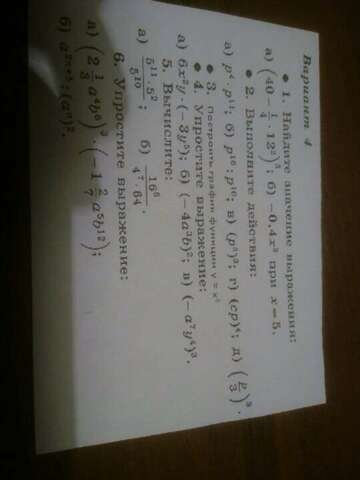 Вариант 4
● 1. Найдите значение выражения:
а) (40 − 1/4 · 12²)³; б) −0,4x³ при x = 5.
● 2. Выполните действия:
а) p⁴ · p¹¹; б) p¹⁶ : p¹⁰; в) (p³)³; г) (cp)⁴; д) (p/3)³.
● 3. Построить график функции y = x²
● 4. Упростите выражение:
а) 6x²y · (−3y⁵); б) (−4a³b)²; в) (−a⁷y⁴)³.
5. Вычислите:
а) 5¹¹ · 5² / 5¹⁰; б) 16⁵ / 4⁷ · 64.
6. Упростите выражение:
а) (2 1/3 a⁴b⁶)³ · (−1 2/7 a⁵b¹²);
б) a²ⁿ⁺³ : (aⁿ)².